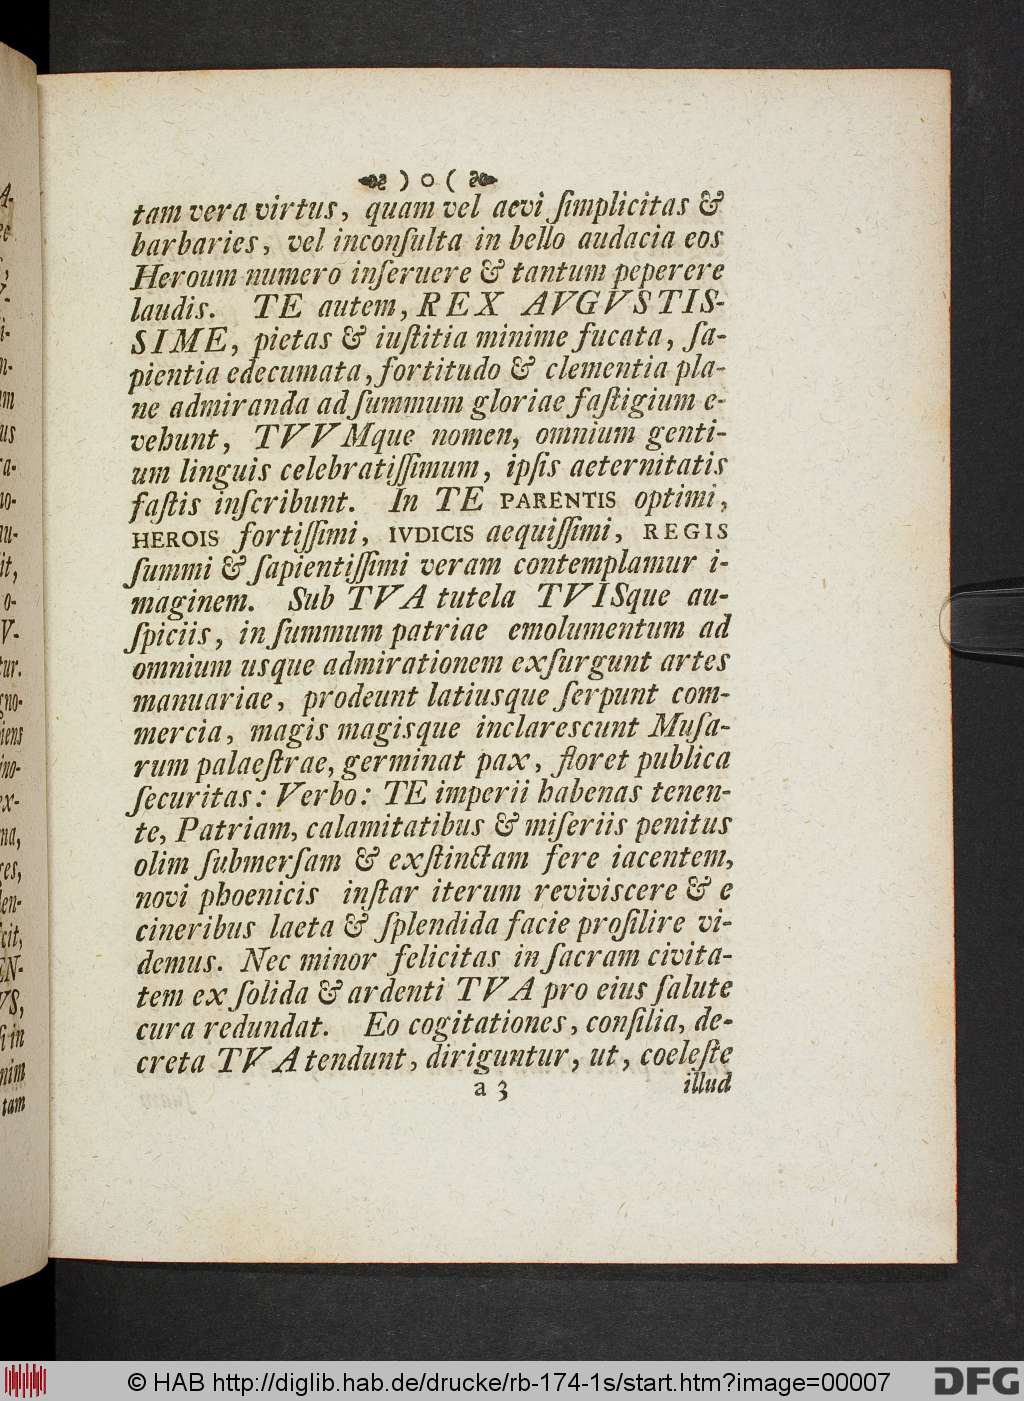 ) o (
tam vera virtus, quam vel aevi ſimplicitas &
barbaries, vel inconſulta in bello audacia eos
Heroum numero inſeruere & tantum peperere
laudis. TE autem, REX AVGVSTIS-
SIME, pietas & iuſtitia minime fucata, ſa-
pientia edecumata, fortitudo & clementia pla-
ne admiranda ad ſummum gloriae faſtigium e-
vehunt, TVVMque nomen, omnium genti-
um linguis celebratiſſimum, ipſis aeternitatis
faſtis inſcribunt. In TE PARENTIS optimi,
HEROIS fortiſſimi, IVDICIS aequiſſimi, REGIS
ſummi & ſapientiſſimi veram contemplamur i-
maginem. Sub TVA tutela TVISque au-
ſpiciis, in ſummum patriae emolumentum ad
omnium usque admirationem exſurgunt artes
manuariae, prodeunt latiusque ſerpunt com-
mercia, magis magisque inclarescunt Muſa-
rum palaeſtrae, germinat pax, floret publica
ſecuritas: Verbo: TE imperii habenas tenen-
te, Patriam, calamitatibus & miſeriis penitus
olim ſubmerſam & exſtinctam fere iacentem,
novi phoenicis inſtar iterum reviviscere & e
cineribus laeta & ſplendida facie proſilire vi-
demus. Nec minor felicitas in ſacram civita-
tem ex ſolida & ardenti TVA pro eius ſalute
cura redundat. Eo cogitationes, conſilia, de-
creta TVA tendunt, diriguntur, ut, coeleſte
a 3 illud
© HAB http://diglib.hab.de/drucke/rb-174-1s/start.htm?image=00007
DFG